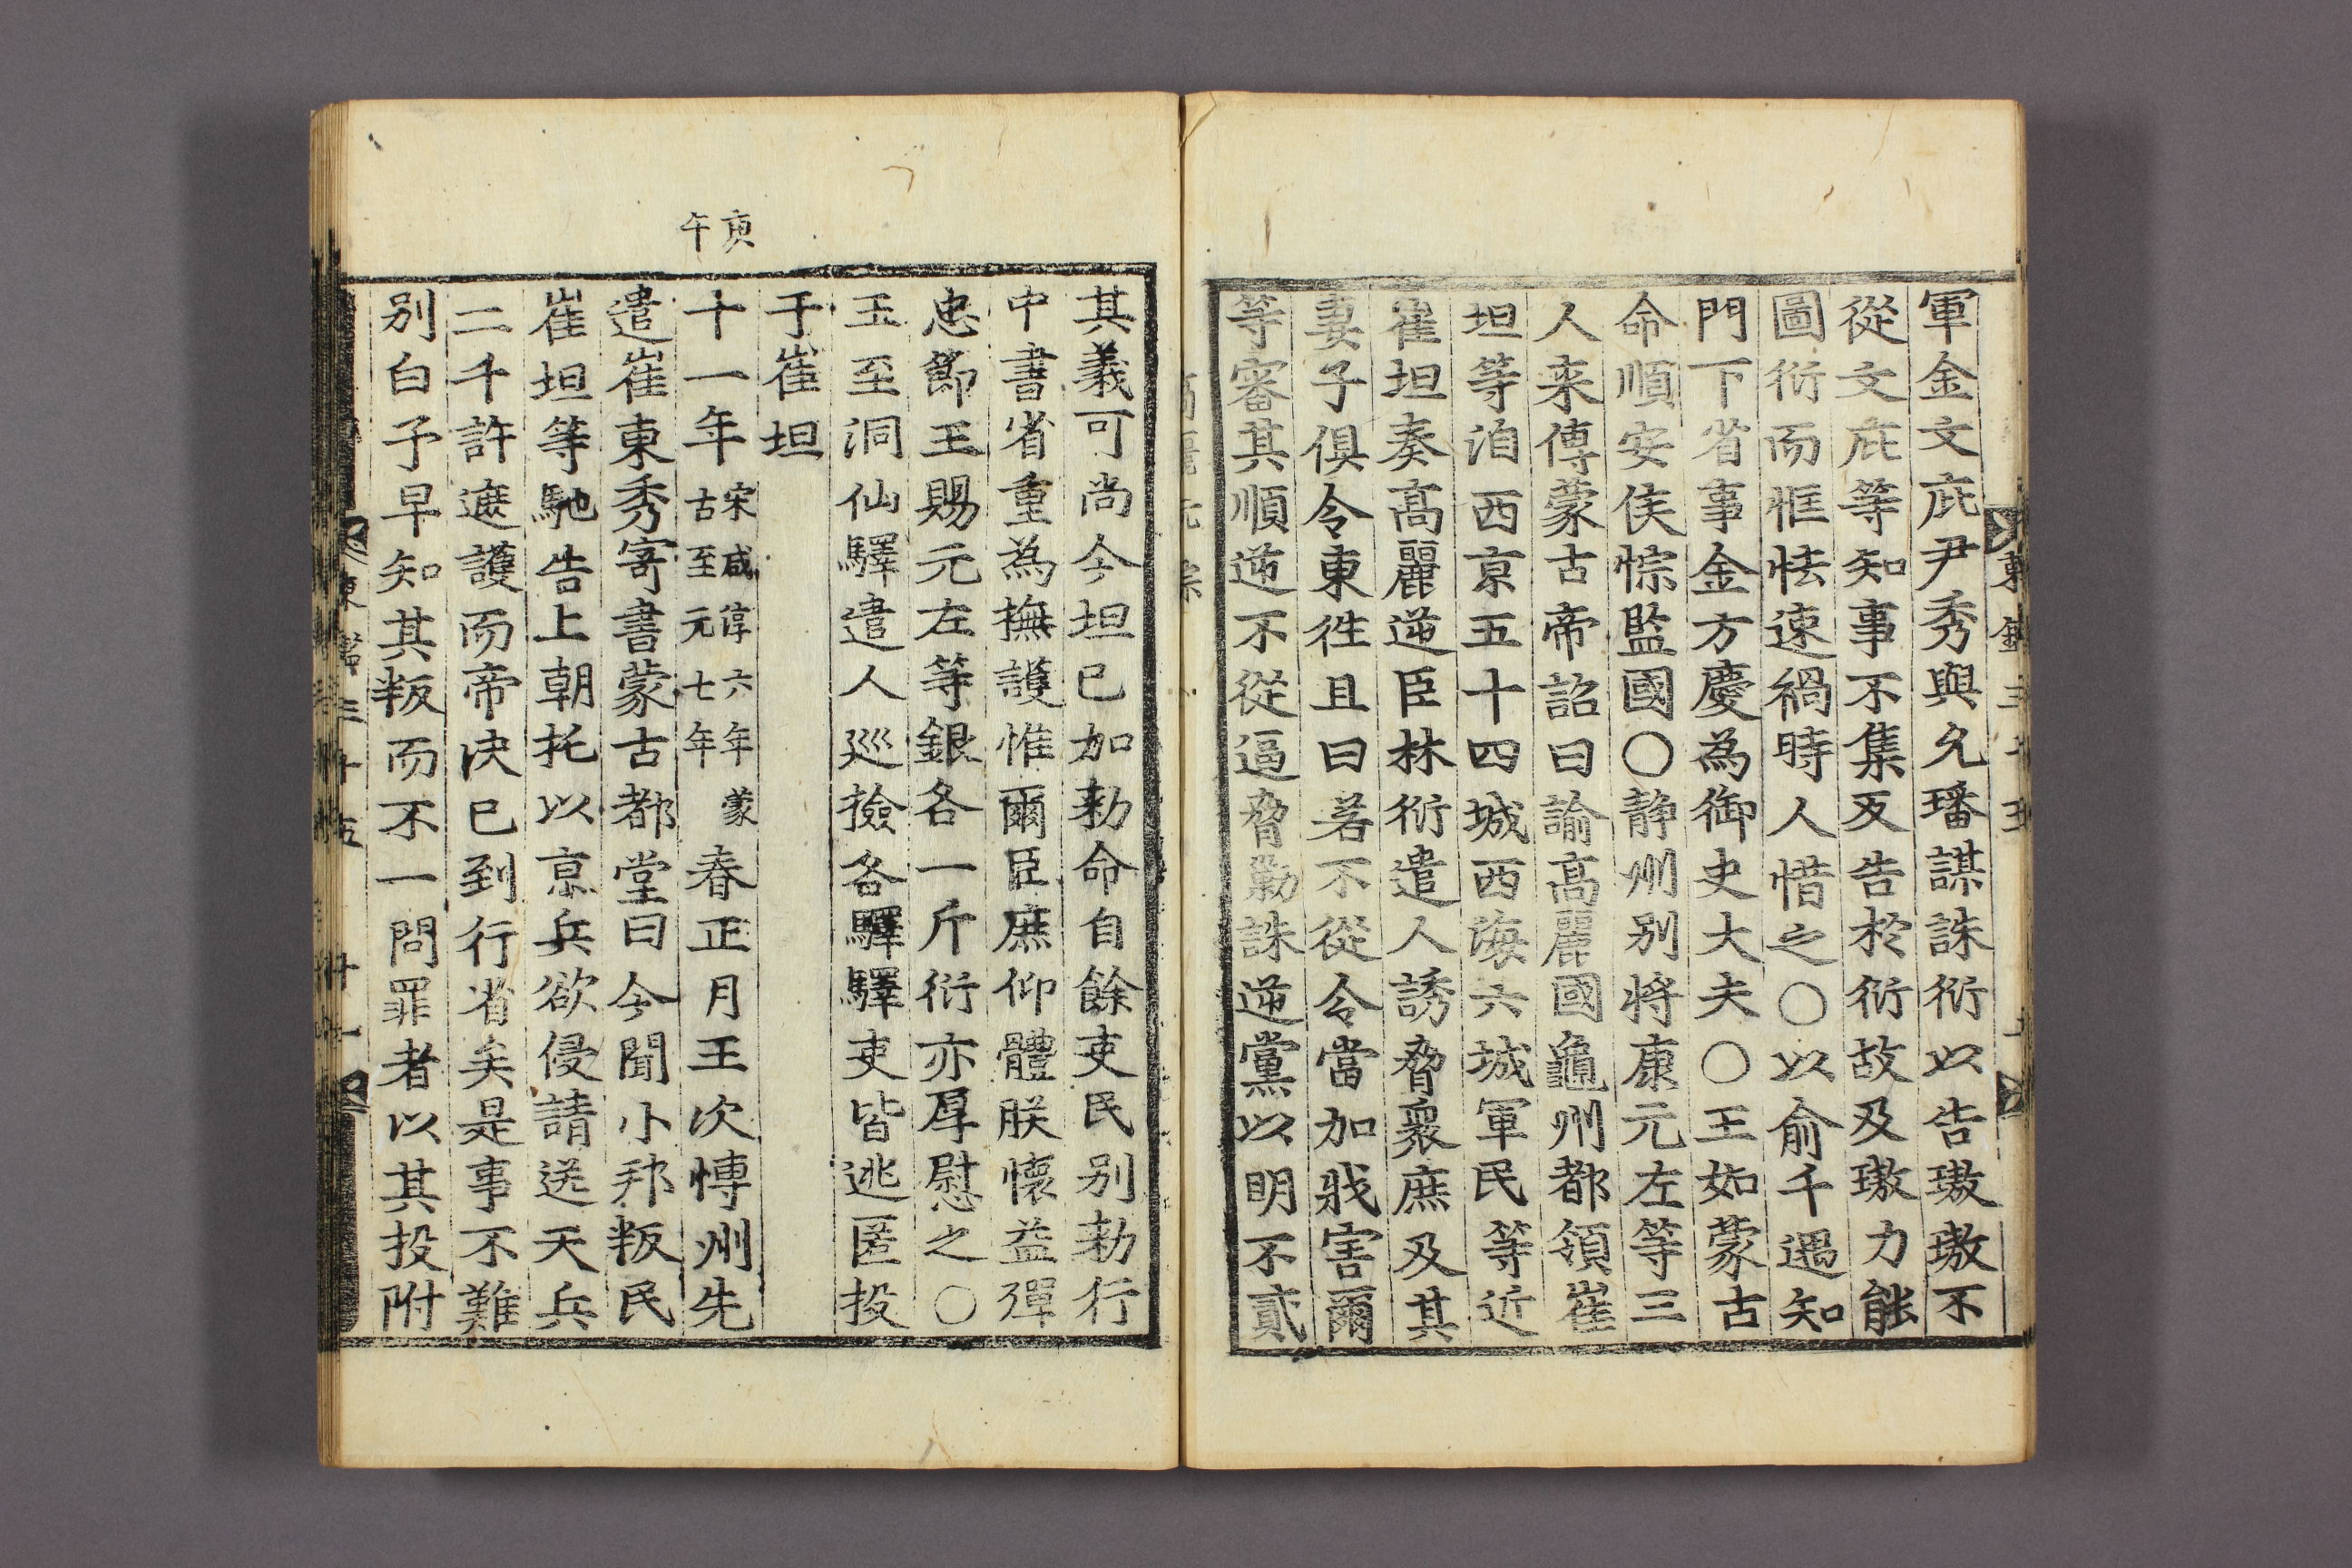 軍金文庇尹秀與允璠謀誅衍以告璈璈不
從文庇等知事不集反告於衍故及璈力能
圖衍而恇怯速禍時人惜之○以俞千遇知
門下省事金方慶為御史大夫○王如蒙古
命順安侯悰監國○靜州别將康元左等三
人来傳蒙古帝詔曰諭高麗國龜州都領崔
坦等洎西京五十四城西海六城軍民等近
崔坦奏高麗逆臣林衍遣人誘脅衆庶及其
妻子俱令東徃且曰若不從令當加戕害爾
等審其順逆不從逼脅勦誅逆黨以明不貳
其義可尚今坦已加勑命自餘吏民别勑行
中書省重為撫護惟爾臣庶仰體朕懷益殫
忠節王賜元左等銀各一斤衍亦厚慰之○
王至洞仙驛遣人廵撿各驛驛吏皆逃匿投
于崔坦
庚午
十一年宋咸淳六年蒙古至元七年春正月王次博州先
遣崔東秀寄書蒙古都堂曰今聞小邦叛民
崔坦等馳告上朝托以京兵欲侵請送天兵
二千許遮護而帝决已到行省矣是事不難
别白予早知其叛而不一問罪者以其投附